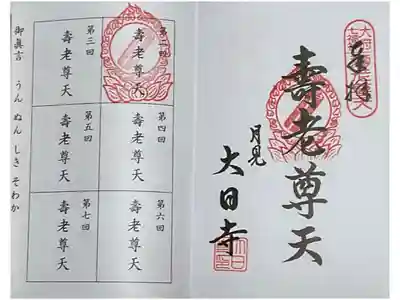 奉拝
壽老尊天
月見
大日寺
第二回
壽老尊天
第三回
壽老尊天
第四回
壽老尊天
第五回
壽老尊天
第六回
壽老尊天
第七回
壽老尊天
御真言 うん ぬん しき そわか